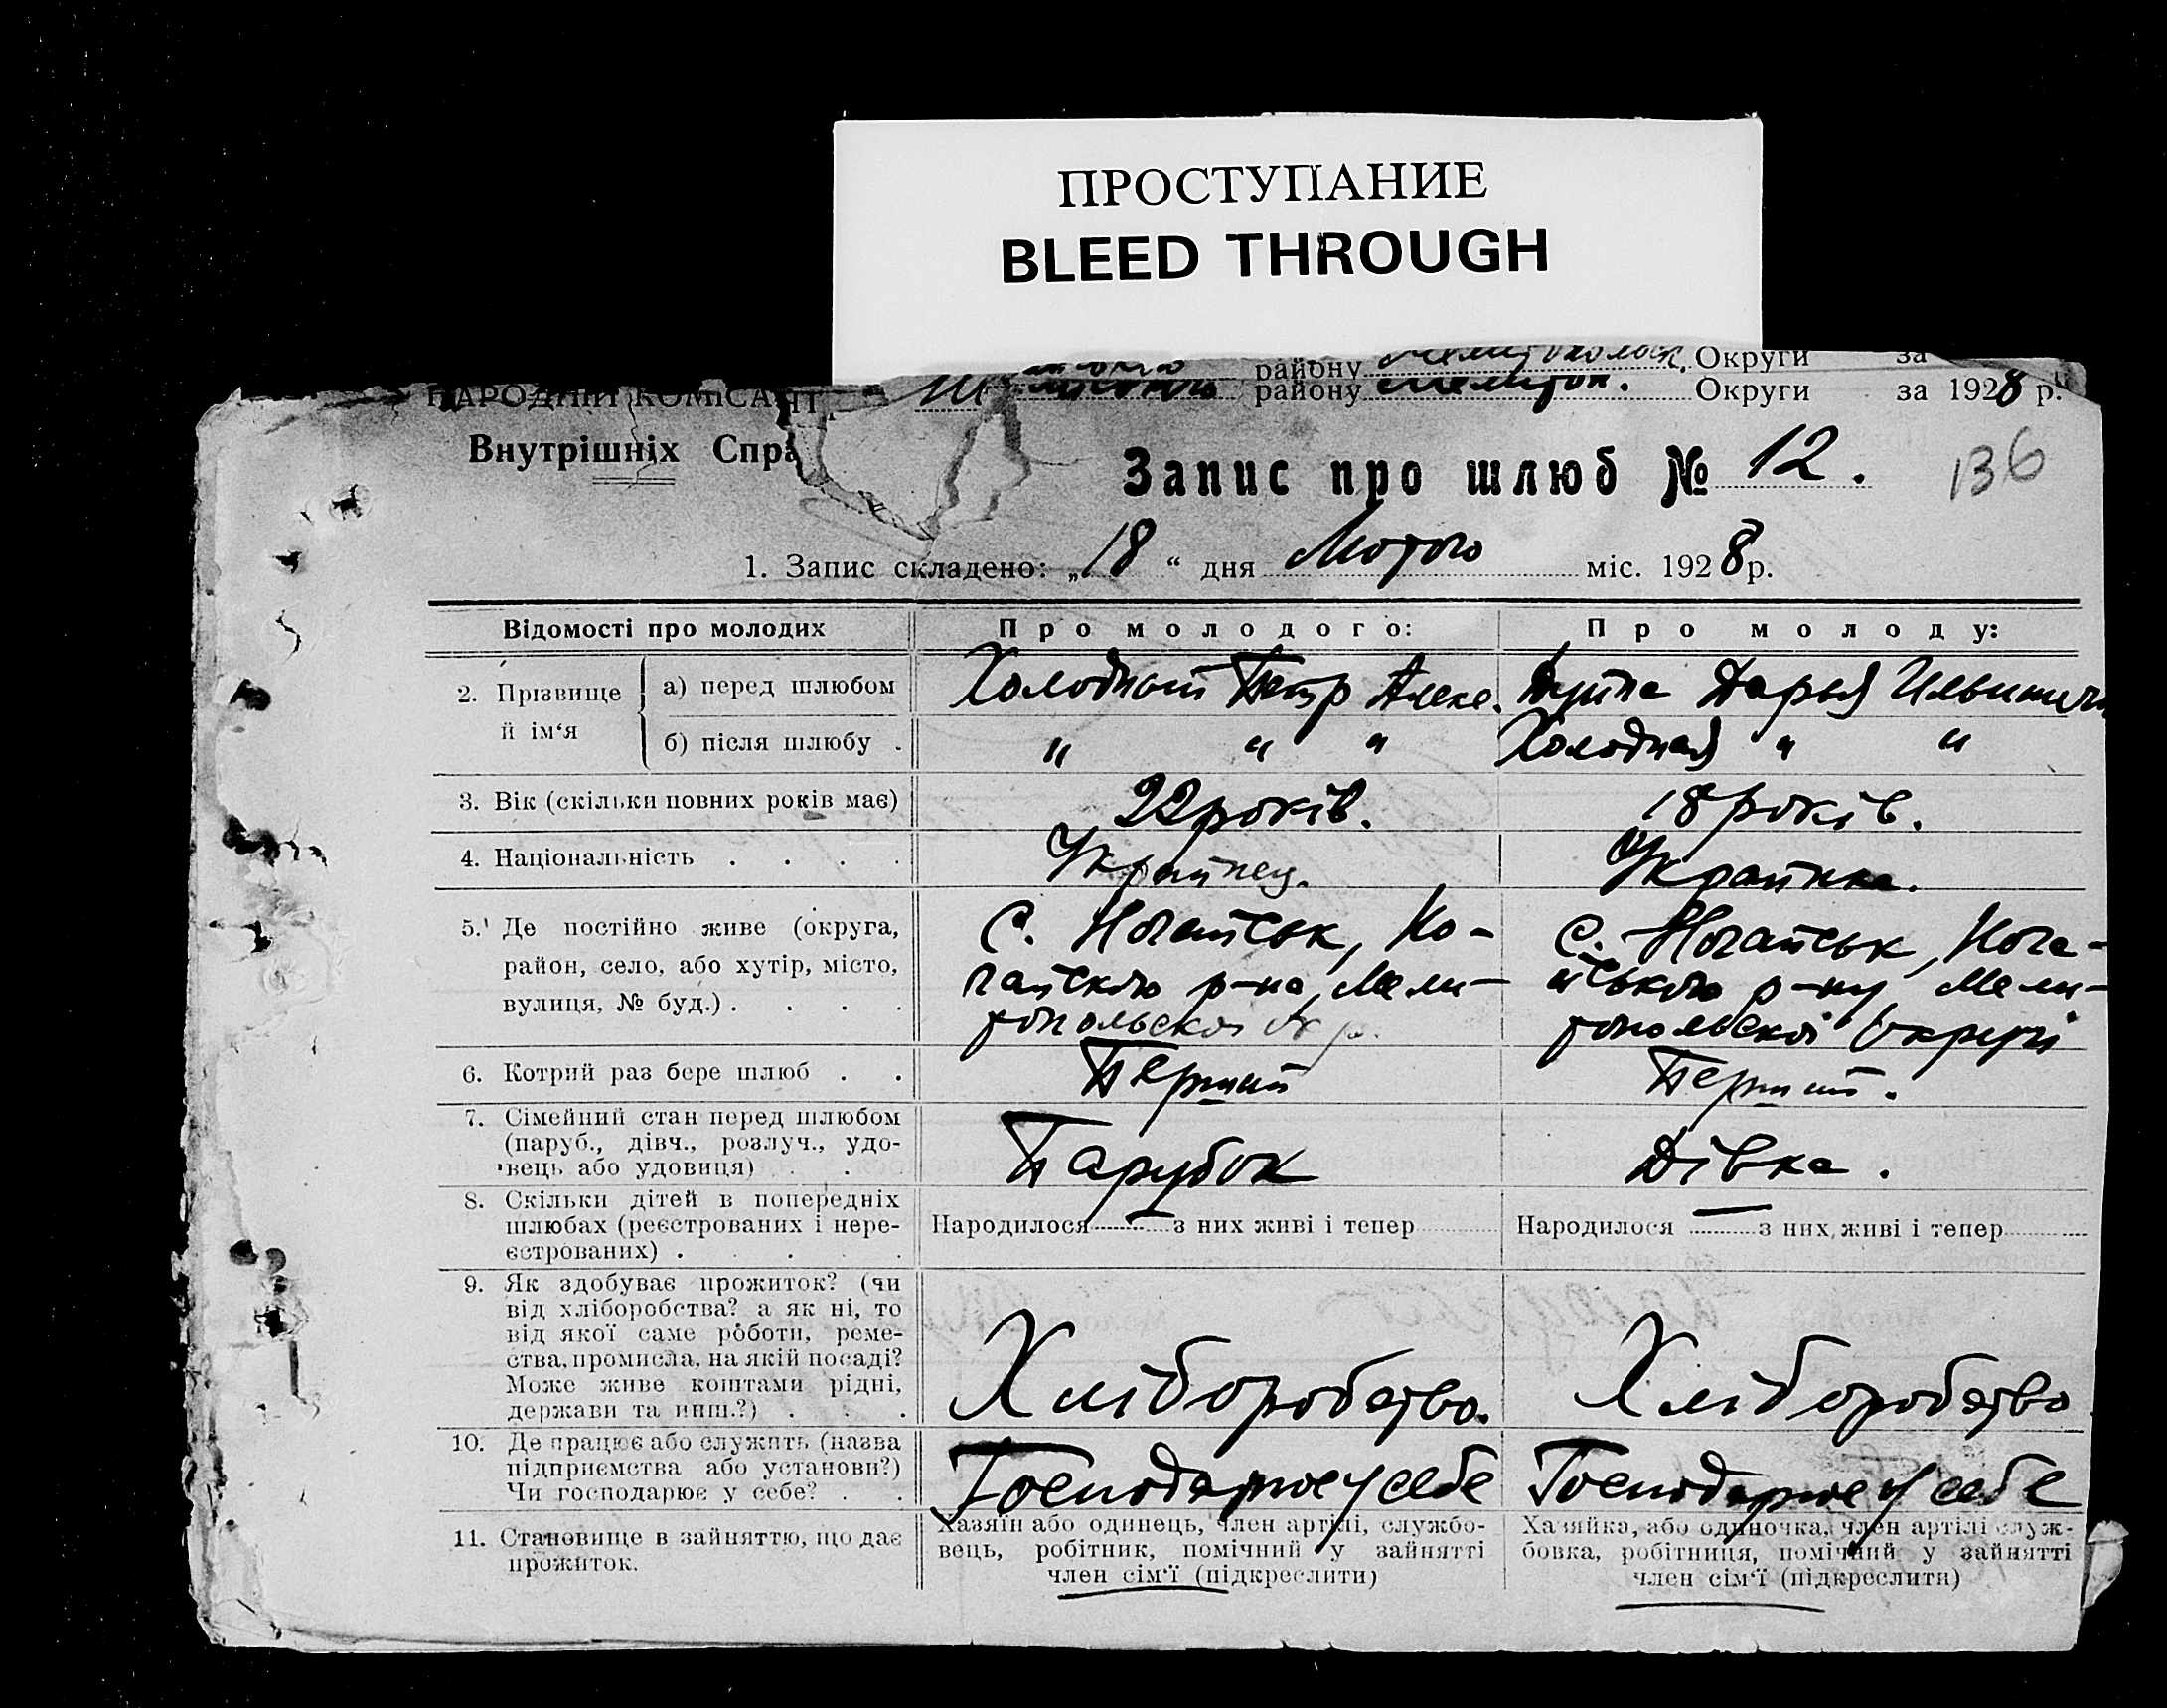 ПРОСТУПАНИЕ
BLEED THROUGH
району Округи за
НАРОДНІЙ КОМІСАРІЯТ району Мелитоп. Округи за 1928 р.
Внутрішніх Спра
Запис про шлюб № 12.
136
1. Запис складено: „18 “ дня Лютого міс. 1928 р.
Відомості про молодих Про молодого: Про молоду:
2. Прізвище й ім‘я
а) перед шлюбом Холодный Петр Алекс. Дарья Ильинич
б) після шлюбу . " " " Холодная " "
3. Вік (скільки повних років має) 22 років. 18 років.
4. Національність . . . . Українец. Українка.
5. Де постійно живе (округа, С. Ногайськ, Но- С. Ногайськ, Нога-
район, село, або хутір, місто, гайского р-на, Мели- йського р-ну Мели-
вулиця, № буд.) . . . . топольскоі Окр. топольскоі Округи
6. Котрий раз бере шлюб . . Перший Перший.
7. Сімейний стан перед шлюбом
(паруб., дівч., розлуч., удо- Парубок Дівка.
вець або удовиця) . .
8. Скільки дітей в попередніх
шлюбах (реєстрованих і нере- Народилося — з них живі і тепер Народилося — з них живі і тепер
єстрованих) . . . .
9. Як здобуває прожиток? (чи
від хліборобства? а як ні, то
від якої саме роботи, реме-
ства, промисла, на якій посаді?
Може живе коштами рідні, Хліборобство. Хліборобство
держави та инш.?) . . .
10. Де працює або служить (назва
підприємства або установи?) Господарює у себе Господарює у себе
Чи господарює у себе? . .
11. Становище в зайняттю, що дає Хазяїн або одинець, член артілі, службо- Хазяйка, або одиночка, член артілі служ-
прожиток. вець, робітник, помічний у зайнятті бовка, робітниця, помічний у зайнятті
член сім‘ї (підкреслити) член сім‘ї (підкреслити)